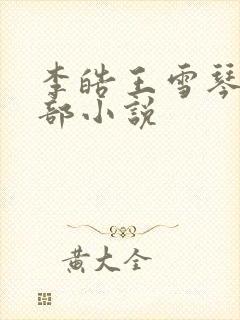 李皓王雪琴
部小说
黄大全